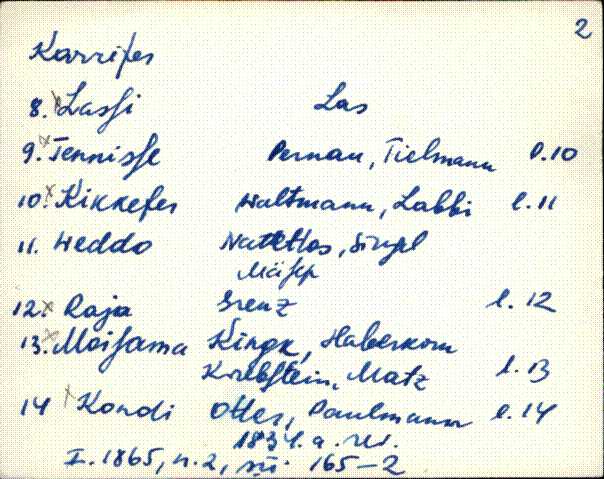 2
Karrifer
8. Lassi Las
9. Tennisse Pernau, Tielmann l.10
10. Kikkefer Waltmann, Labbi l.11
11. Weddo
12. Raja Grenz l.12
13. Moisama Kingk, Haberkorn
Krebstein, Matz l.13
14 Kondi Otter, Paulmann l.14
1834.a. rev.
I.1865, n.2, sü. 165-2